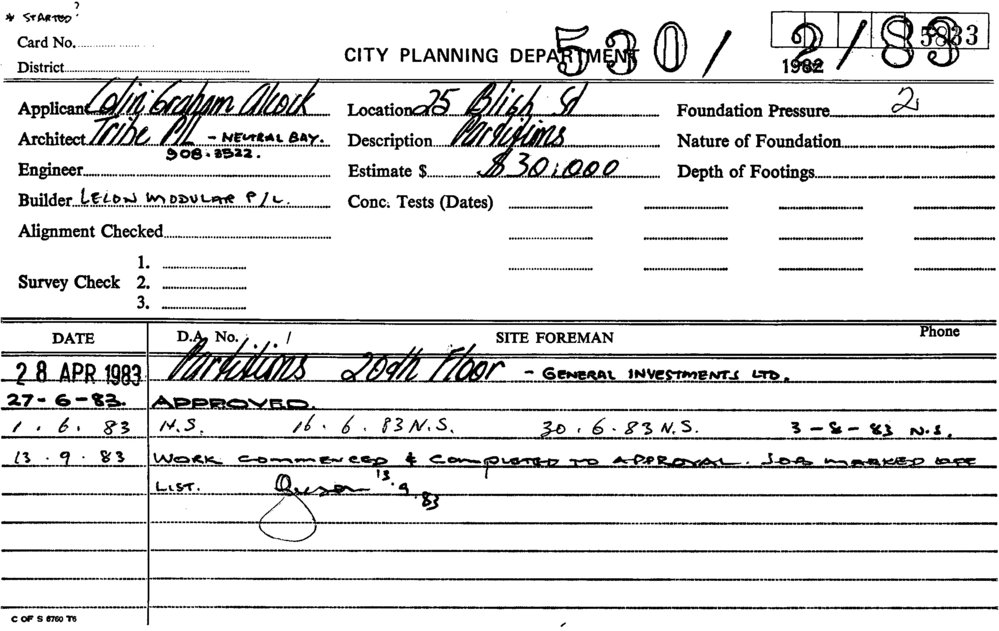 * STARTED?
Card No.
District
CITY PLANNING DEPARTMENT
530/2/83
1982
5833
Applicant Colin Graham Alcock
Location 25 Bligh St
Foundation Pressure 2
Architect Tribe P/L - NEUTRAL BAY.
908.3522.
Description Partitions
Nature of Foundation
Engineer
Estimate $ $30,000
Depth of Footings
Builder LELON MODULAR P/L.
Conc. Tests (Dates)
Alignment Checked
Survey Check 1.
2.
3.
DATE D.A. No. / SITE FOREMAN Phone
28 APR 1983 Partitions 20th Floor - GENERAL INVESTMENTS LTD.
27-6-83. APPROVED.
1.6.83 N.S. 16.6.83 N.S. 30.6.83 N.S. 3-8-83 N.S.
13.9.83 WORK COMMENCED & COMPLETED TO APPROVAL. JOB MARKED OFF
LIST. 13.9.83
C OF S 8760 T6